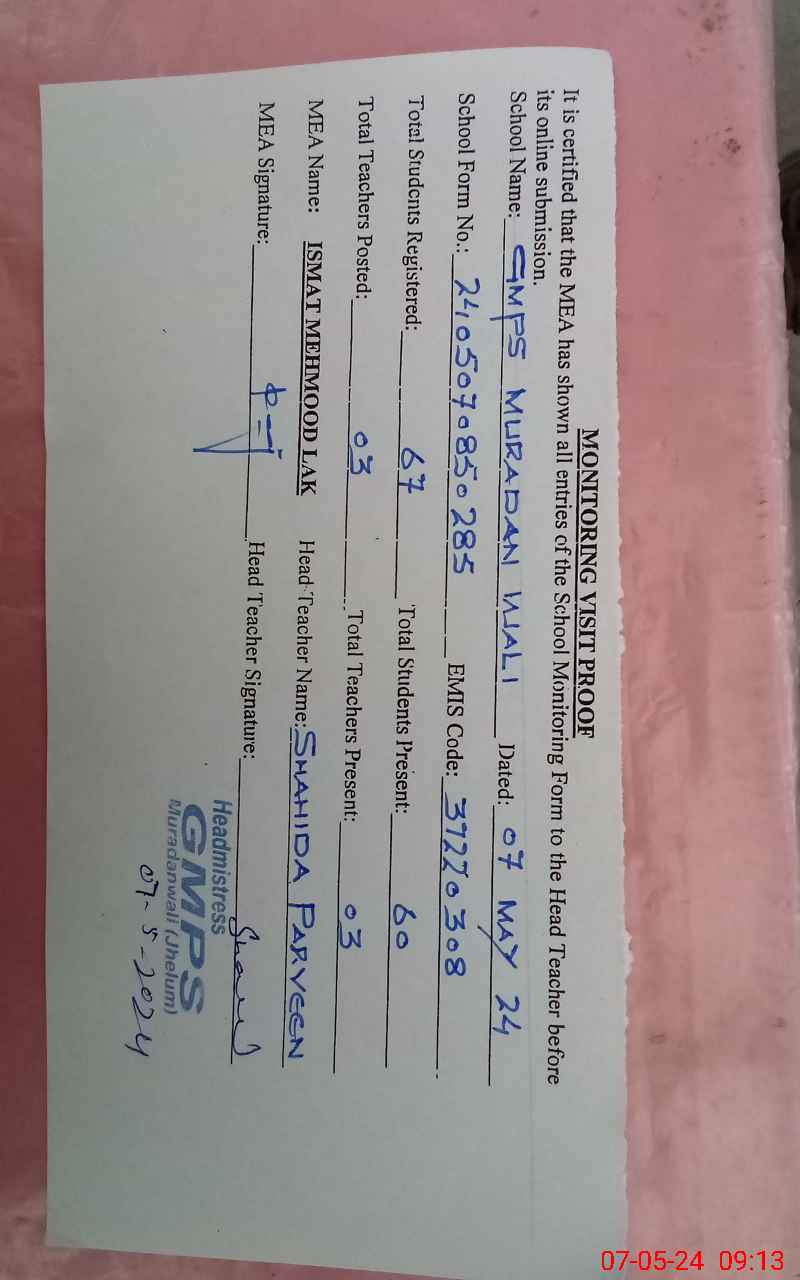 MONITORING VISIT PROOF
It is certified that the MEA has shown all entries of the School Monitoring Form to the Head Teacher before
its online submission.
School Name: GMPS MURADAN WALI Dated: 07 MAY 24
School Form No.: 2405070850285 EMIS Code: 37220308
Total Students Registered: 67 Total Students Present: 60
Total Teachers Posted: 03 Total Teachers Present: 03
MEA Name: ISMAT MEHMOOD LAK Head Teacher Name: SHAHIDA PARVEEN
MEA Signature: Head Teacher Signature:
Headmistress
GMPS
Muradanwali (Jhelum)
07-5-2024
07-05-24 09:13